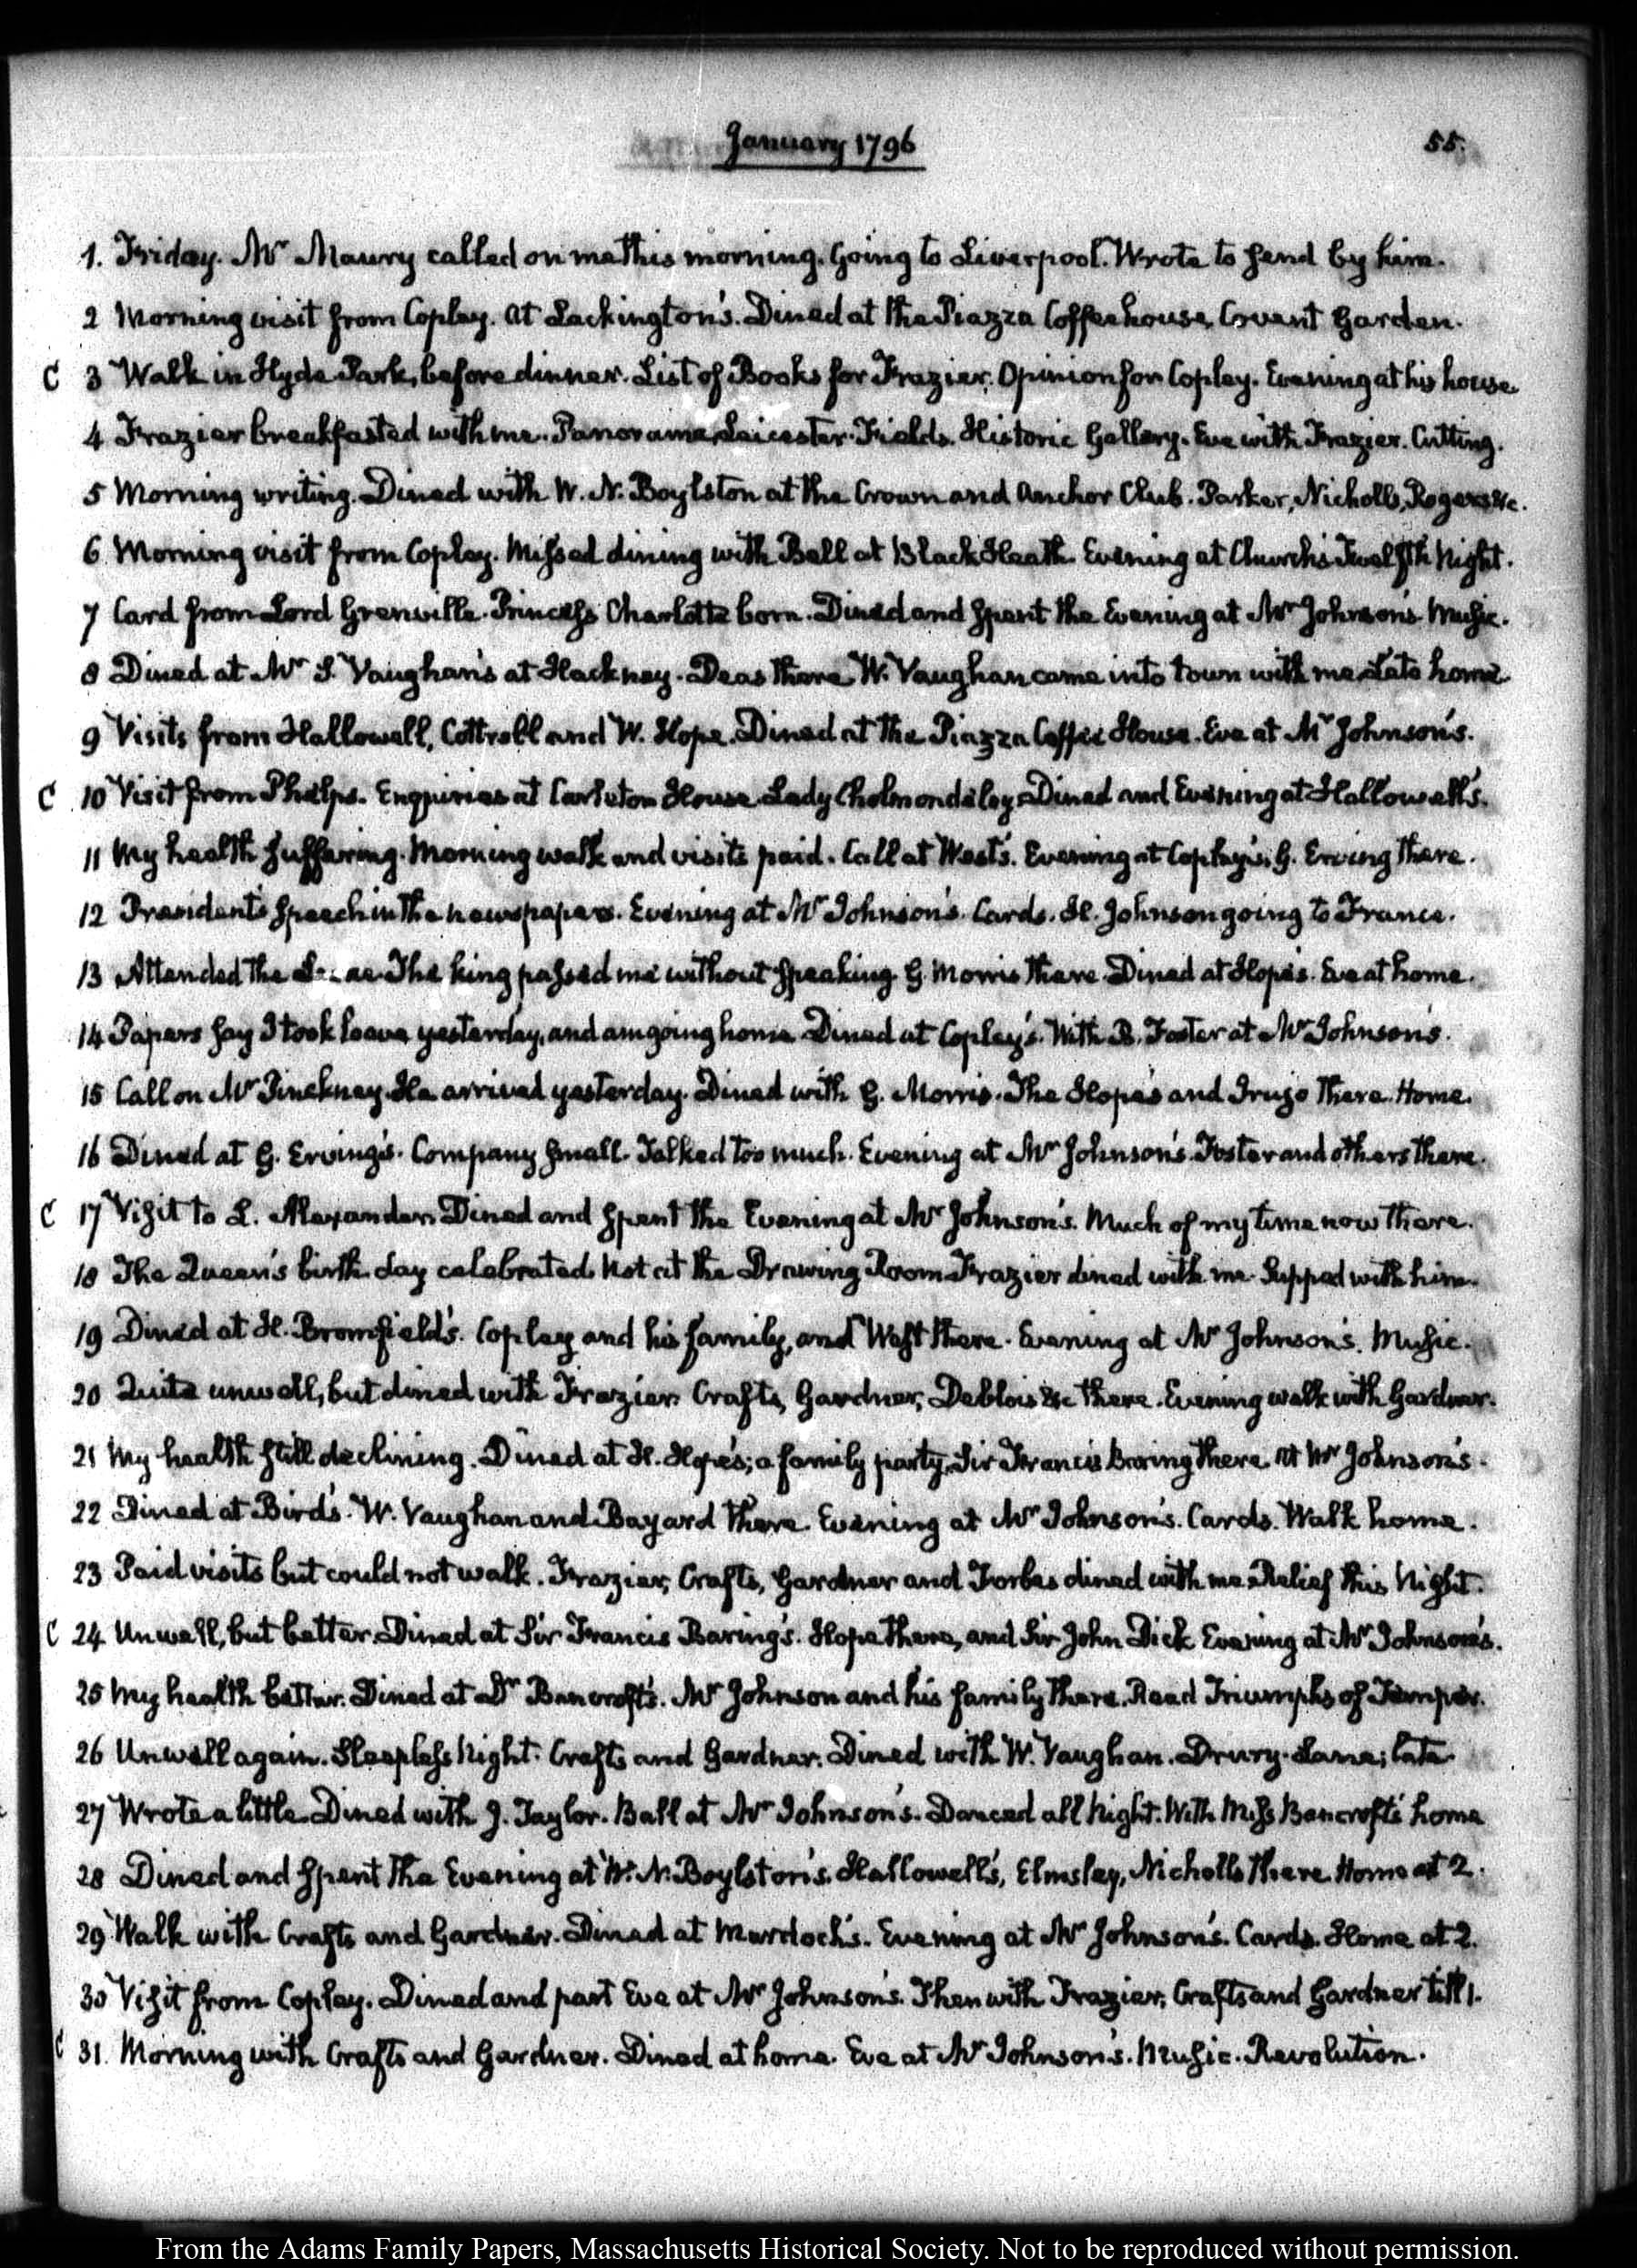 January 1796
55.
1. Friday. Mr Maury called on me this morning. Going to Liverpool. Wrote to send by him.
2 Morning visit from Copley. At Lackington's. Dined at the Piazza Coffeehouse, Covent Garden.
C 3 Walk in Hyde Park, before dinner. List of Books for Frazier. Opinion for Copley. Evening at his house.
4 Frazier breakfasted with me. Panorama, Leicester Fields. Historic Gallery. Eve with Frazier. Cutting.
5 Morning writing. Dined with W. N. Boylston at the Crown and Anchor Club. Parker, Nicholls, Rogers &c.
6 Morning visit from Copley. Missed dining with Ball at Black Heath. Evening at Church's Twelfth Night.
7 Card from Lord Grenville. Princess Charlotte born. Dined and spent the Evening at Mr Johnson's. Music.
8 Dined at Mr S. Vaughan's at Hackney. Deas there. W. Vaughan came into town with me. Late home.
9 Visits from Hallowell, Cottrell and W. Hope. Dined at the Piazza Coffee House. Eve at Mr Johnson's.
C 10 Visit from Phelps. Enquiries at Carleton House. Lady Cholmondeley. Dined and Evening at Hallowell's.
11 My health suffering. Morning walk and visits paid. Call at West's. Evening at Copley's, G. Erving there.
12 President's Speech in the newspapers. Evening at Mr Johnson's. Cards. H. Johnson going to France.
13 Attended the The king passed me without speaking. G. Morris there. Dined at Hope's. Eve at home.
14 Papers say I took leave yesterday, and am going home. Dined at Copley's. With B. Foster at Mr Johnson's.
15 Call on Mr Pinckney. He arrived yesterday. Dined with G. Morris. The Hopes and Trujo there. Home.
16 Dined at G. Erving's. Company small. Talked too much. Evening at Mr Johnson's. Foster and others there.
C 17 Visit to L. Alexander. Dined and spent the Evening at Mr Johnson's. Much of my time now there.
18 The Queen's birth day celebrated. Not at the Drawing Room. Frazier dined with me. Supped with him.
19 Dined at H. Bromfield's. Copley and his family, and West there. Evening at Mr Johnson's. Music.
20 Quite unwell, but dined with Frazier. Crafts, Gardner, Deblois &c there. Evening walk with Gardner.
21 My health still declining. Dined at H. Hope's; a family party, Sir Francis Baring there. At Mr Johnson's.
22 Dined at Bird's. W. Vaughan and Bayard there. Evening at Mr Johnson's. Cards. Walk home.
23 Paid visits but could not walk. Frazier, Crafts, Gardner and Forbes dined with me. Relief this Night.
C 24 Unwell, but better. Dined at Sir Francis Baring's. Hope there, and Sir John Dick. Evening at Mr Johnson's.
25 My health better. Dined at Dr Bancroft's. Mr Johnson and his family there. Read Triumphs of Temper.
26 Unwell again. Sleepless Night. Crafts and Gardner. Dined with W. Vaughan. Drury-Lane; late.
27 Wrote a little. Dined with J. Taylor. Ball at Mr Johnson's. Danced all Night. With Miss Bancrofts home
28 Dined and spent the Evening at W. N. Boylston's. Hallowell's, Elmsley, Nicholls there. Home at 2.
29 Walk with Crafts and Gardner. Dined at Murdoch's. Evening at Mr Johnson's. Cards. Home at 2.
30 Visit from Copley. Dined and part Eve at Mr Johnson's. Then with Frazier, Crafts and Gardner till 1.
C 31. Morning with Crafts and Gardner. Dined at home. Eve at Mr Johnson's. Music. Revolution.
From the Adams Family Papers, Massachusetts Historical Society. Not to be reproduced without permission.